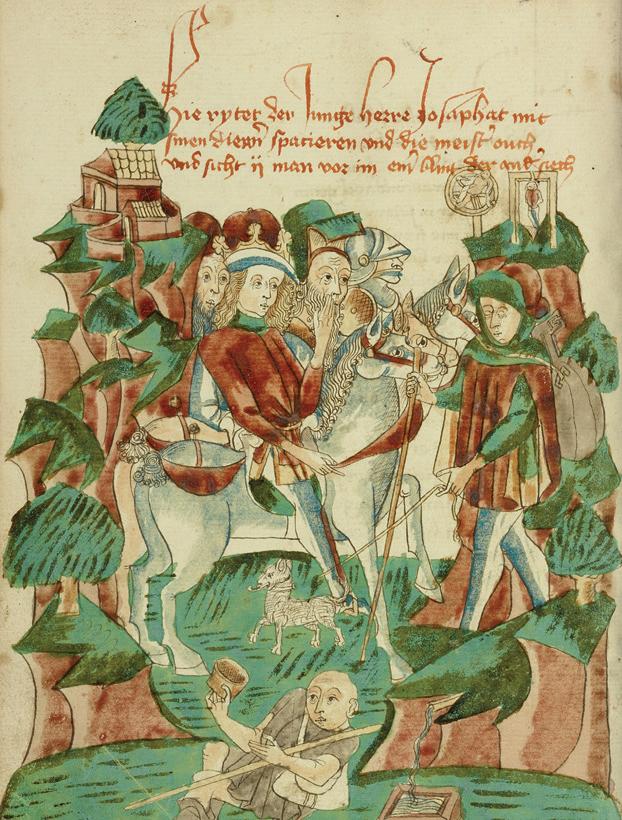 Hie rytet der Junge herre Josaphat mit
sinen dienern spacieren vnd die meister ouch
vnd sicht ij man vor im ein blind der ander siech